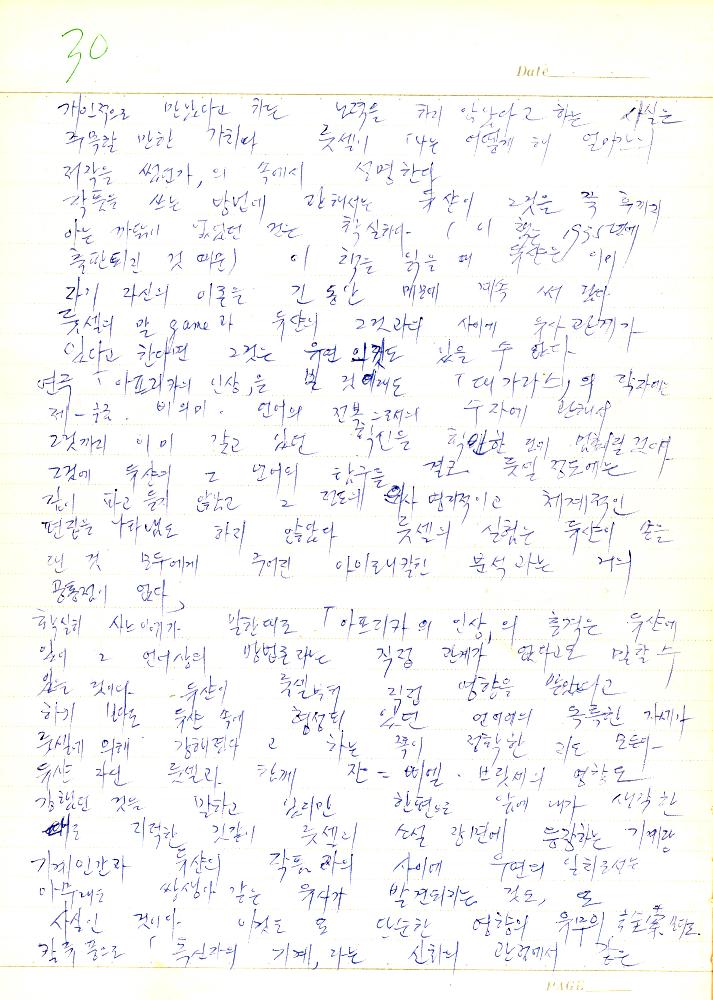 30
Date
개인적으로 만났다고 하는 노력을 하지 않았다고 하는 사실은
주목할 만한 가치다 룻셀이 「나는 어떻게 해
저작을 썼던가」의 속에서 설명한다
작품을 쓰는 방법에 관해서는 뒤샹이 그것을 꼭 후까지
아는 까닭이 없었던 것은 확실하다. (이 책은 1935년에
출판되긴 것 때문) 이 책을 읽을 때 뒤샹은 이미
자기 자신의 이론을 긴 동안 계속 써 왔다.
룻셀의 말 game과 뒤샹의 그것과의 사이에 유사관계가
있다고 한다면 그것은 우연 일 수도 있을 수
연극 「아프리카의 인상」을 본 것이래도 「대가라스」의 작자에
제一 언어의 전복으로서의 수작에 관해서
그것까지 이미 갖고 있던 확신을 확인한 면에
그것에 뒤샹의 그 언어의 탐구를 결코 룻셀 정도에는
깊이 파고 들지 않았고 그 정도의 명리적이고 체계적인
편람을 나타냄도 하지 않았다 룻셀의 실험은 뒤샹이 손을
댄 것 모두에게 주어진 아이로니칼한 분석과는 거의
공통점이 없다」
확실히 사누이에가 말한대로 「아프리카의 인상」의 충격은 뒤샹에
있어 그 언어상의 방법론과는 직접 관계가 없다고도 말할 수
있을 것이다. 뒤샹이 룻셀부터 직접 영향을 받았다고
하기 보다도 뒤샹 속에 형성되 있던 언어에의 독특한 자세가
룻셀에 의해 강해졌다고 하는 쪽이 정확한 지도 모른다.
뒤샹 자신 룻셀과 함께 쟌=삐엘·브릿세의 영향도
강했던 것을 말하고 있지만 한편으로 앞에 내가 생각한
대로 지적한 것같이 룻셀의 소설 장면에 등장하는 기계랑
기계인간과 뒤샹의 작품과의 사이에 우연의 일치로서는
아무래도 쌍생아 같은 유사가 발견되지는 것도, 또
사실인 것이다. 이것도 또 단순한 영향의 유무의 보다도.
칼륙쭈으로 「독신자의 기계」라는 신화의 관점에서 같은
PAGE